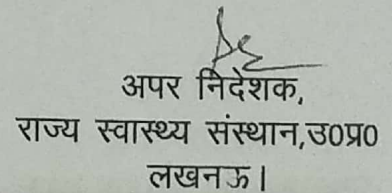 अपर निदेशक,
राज्य स्वास्थ्य संस्थान,उ0प्र0
लखनऊ।